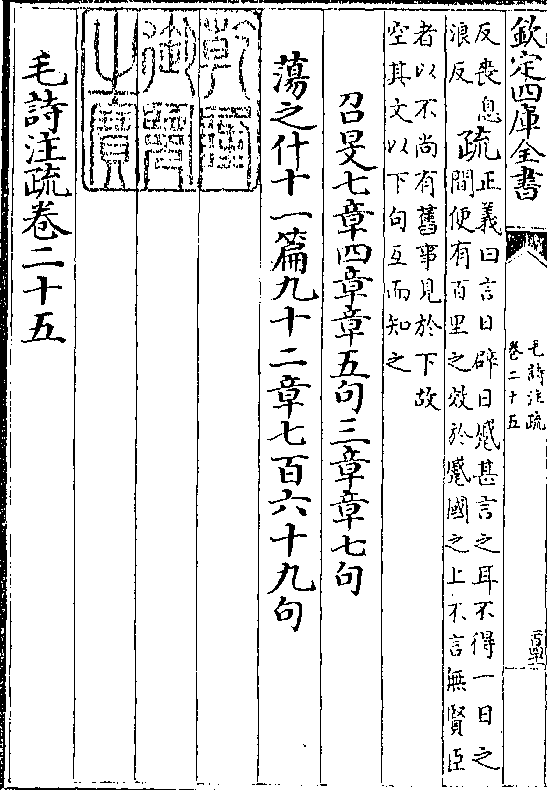 欽定四庫全書
毛詩注疏
卷二十五
反喪息
浪反
疏
正義曰言日辟日蹙甚言之耳不得一日之
間便有百里之效於蹙國之上不言無賢臣
者以不尚有舊事見於下故
空其文以下句互而知之
召旻七章四章章五句三章章七句
蕩之什十一篇九十二章七百六十九句
乾隆
御覽
之寶
毛詩注疏卷二十五